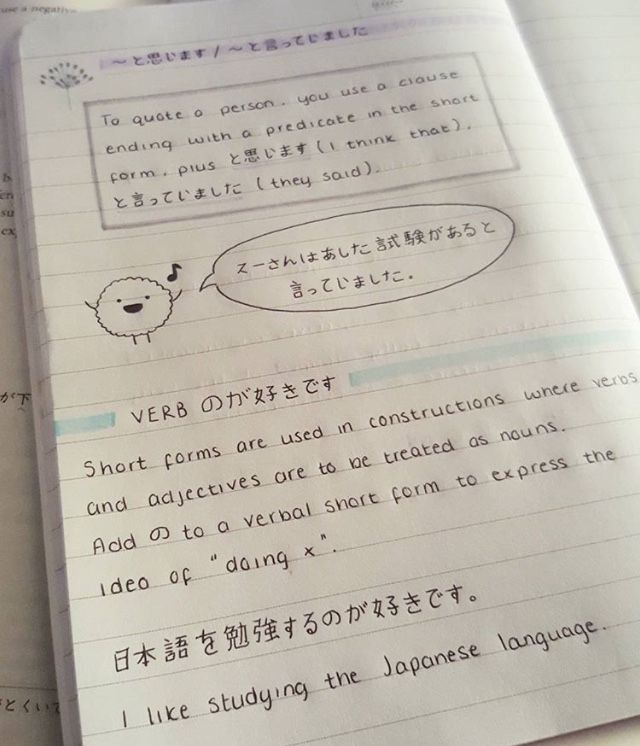 use a negative
〜と思います / 〜と言っていました
To quote a person, you use a clause
ending with a predicate in the short
form, plus と思います (I think that),
と言っていました (they said).
スーさんはあした試験があると
言っていました.
VERB のが好きです
Short forms are used in constructions where verbs
and adjectives are to be treated as nouns.
Add の to a verbal short form to express the
idea of "doing x".
日本語を勉強するのが好きです。
I like studying the Japanese language.